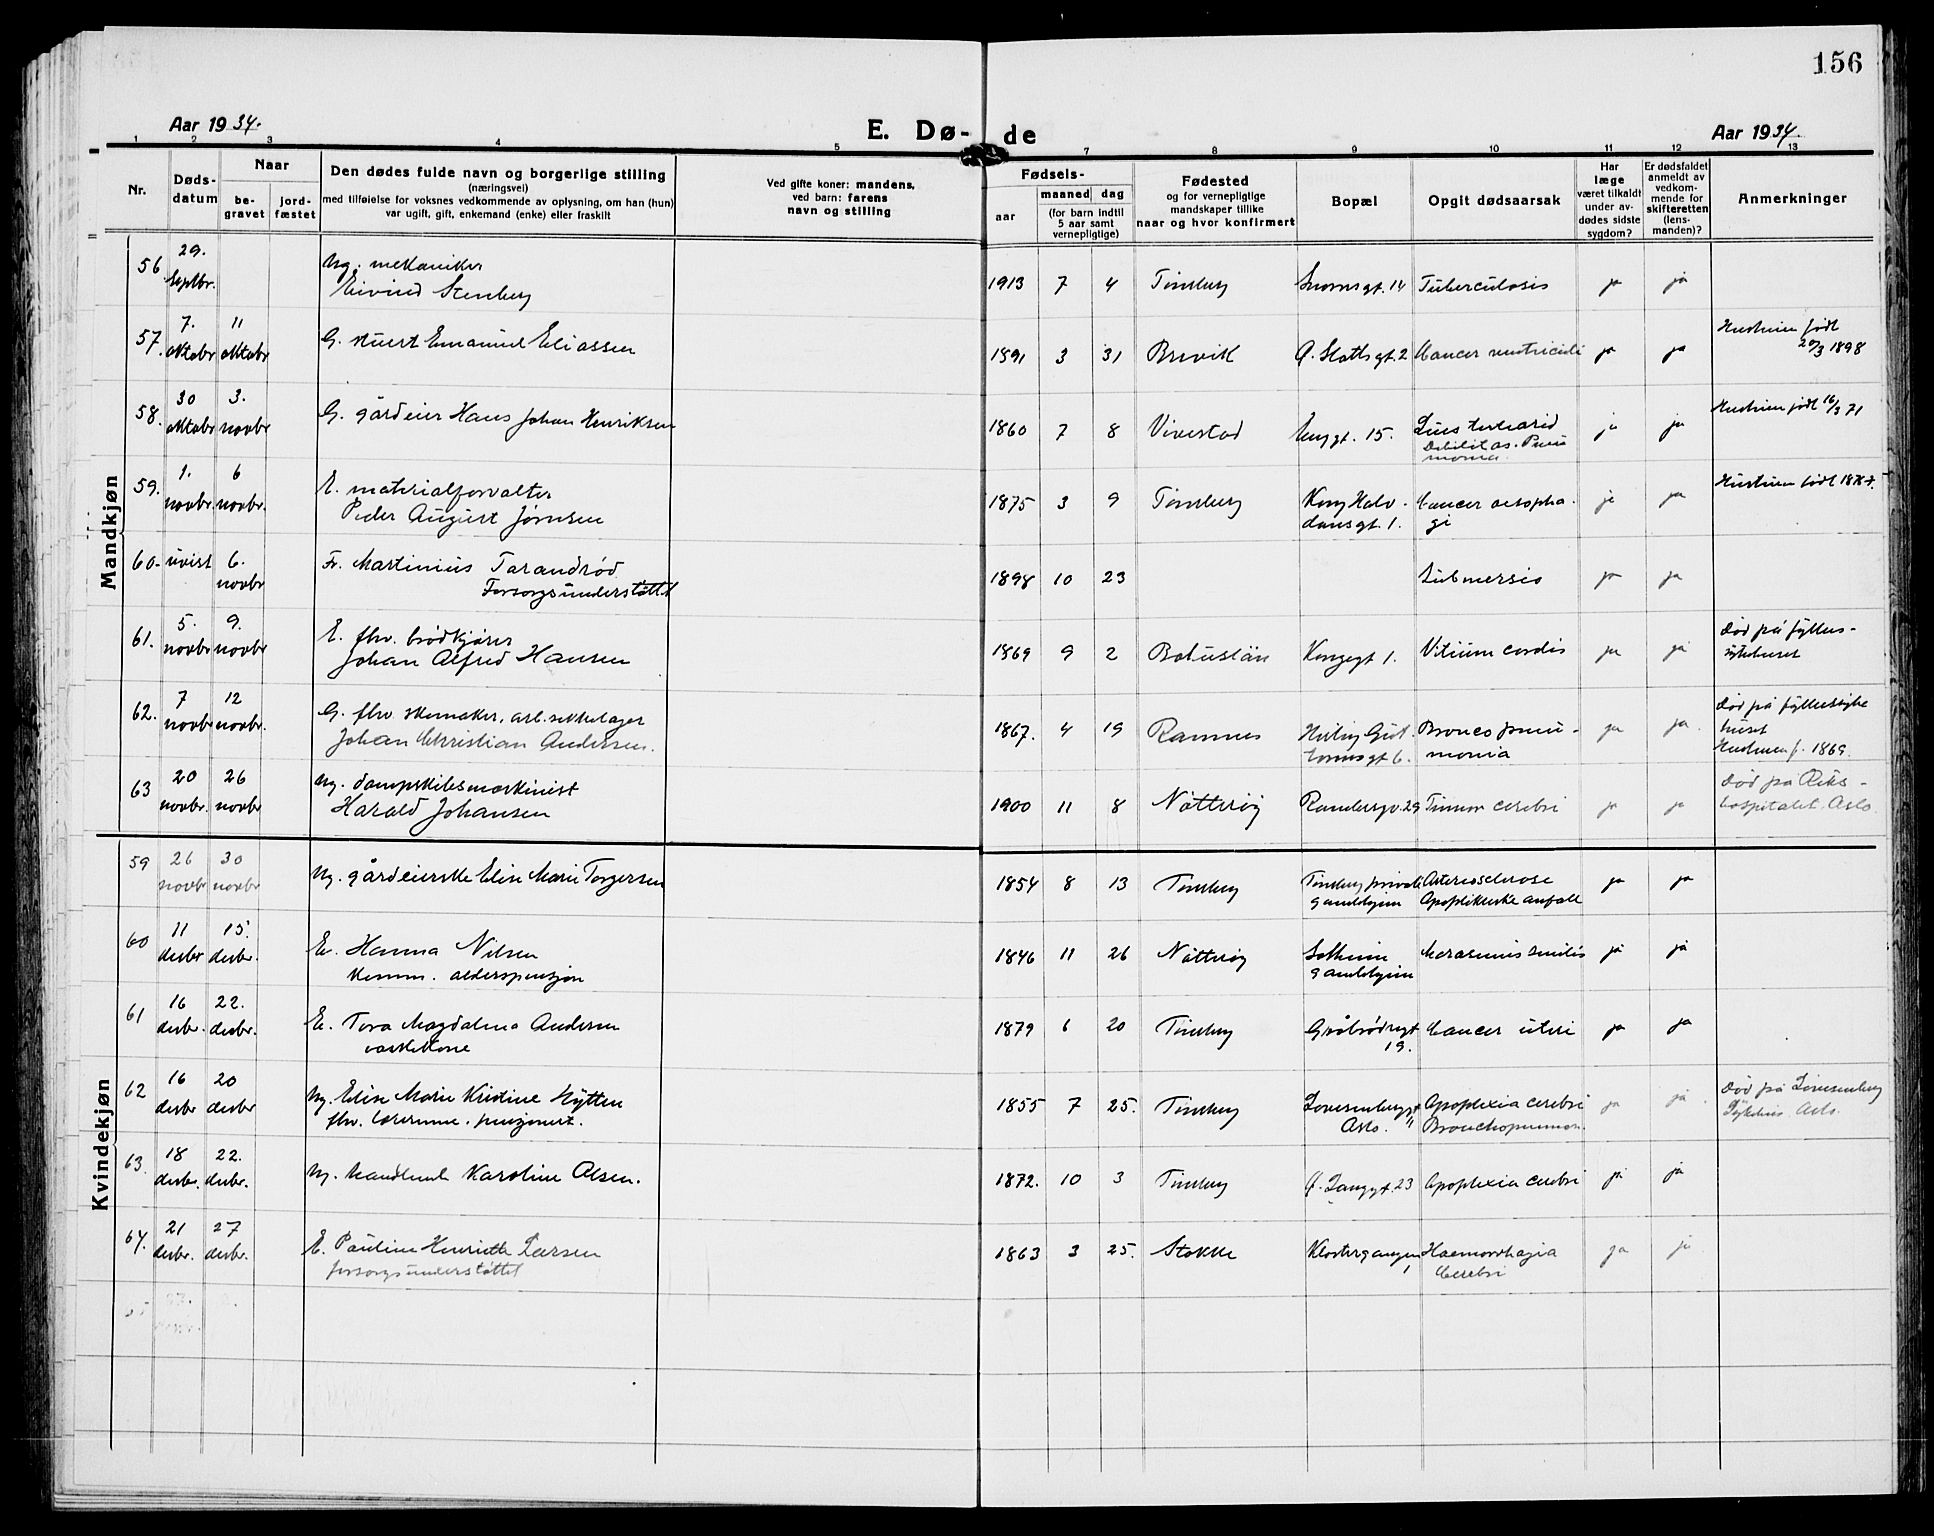 156
Aar 1934.
E. Dø-
de
Aar 1934.
1 2 3 4 5 7 8 9 10 11 12 13
Nr.
Døds-
datum
Naar
be-
gravet
jord-
fæstet
Den dødes fulde navn og borgerlige stilling
(næringsvei)
med tilføielse for voksnes vedkommende av oplysning, om han (hun)
var ugift, gift, enkemand (enke) eller fraskilt
Ved gifte koner: mandens,
ved barn: farens
navn og stilling
Fødsels-
aar
maaned
dag
(for barn indtil
5 aar samt
vernepligtige)
Fødested
og for vernepligtige
mandskaper tillike
naar og hvor konfirmert
Bopæl
Opgit dødsaarsak
Har
læge
været tilkaldt
under av-
dødes sidste
sygdom?
Er dødsfaldet
anmeldt av
vedkom-
mende for
skifteretten
(lens-
manden)?
Anmerkninger
Mandkjøn
56. 29. Septbr. Ug. mekaniker
Eivind Stenberg 1913 7 4 Tønsberg Snorresgt. 14 Tuberculosis ja ja
57. 7. oktobr 11 oktobr G. stuert Emanuel Eliassen 1891 3 31 Brevik A. Slottsgt. 2 Cancer ventriculi ja ja Hustruen født
20/3 1898
58. 30 oktobr 3. novbr G. gårdeier Hans Johan Henriksen 1860 7 8 Vivestad Enggt. 15. Lues tertiaria
Debilitas. Pneu
monia. ja ja Hustruen født 16/3 71
59. 1. novbr. 6 novbr. E. materialforvalter
Peder August Jørnsen 1875 3 9 Tønsberg Kong Halv-
dansgt. 1. Cancer oesopha-
gi ja ja Hustruen født
60. uvist 6. novbr Fr. Martinius Tarandrød
Forsorgsunderstøttet 1898 10 23 Submersio ja ja
61. 5. novbr 9. novbr E. fhv. brødkjører
Johan Alfred Hansen 1869 9 2 Bohuslän Kongegt 1. Vitium cordis ja ja Død på fylkes-
sykehuset
62. 7 novbr 12 novbr. G. fhv. skomaker, arb. sekkelager
Johan Christian Andersen. 1867. 4 19 Ramnes Hertug Gut
tormsgt 6. Broncopneu-
monia ja ja. Død på fylkessyke
huset
Hustruen f. 1869.
63 20 novbr. 26 novbr Ug. dampskibsmaskinist
Harald Johansen 1900 11 8 Nøtterøy Randersgv. 29 Tumor cerebri ja ja Død på Riks-
hospitalet. Oslo
Kvindekjøn
59 26 novbr 30 novbr Ug. gårdeierske Elise Marie Torgersen 1854 8 13 Tønsberg Tønsberg private
gamlehjem Arteriosclerose
Apoplektiske anfall ja ja
60 11 desbr 15. desbr. E. Hanna Nilsen
Komm. alderspensjon 1846 11 26 Nøtterøy Solheim
gamlehjem Marasmus senilis ja ja
61 16 desbr. 22. desbr. E. Tora Magdalena Andersen
vaskekone 1879 6 20 Tønsberg Gråbrødregt
19. Cancer uteri ja ja
62 16 desbr 20 desbr Ug. Elise Marie Kristine Hytten
fhv. lærerinne. pensjonert. 1855 7 25. Tønsberg Lovisenberggt
Oslo. 11 Apoplexia cerebri
Bronchopneumon. ja ja. Død på Lovisenberg
Sykehus Oslo.
63. 18 desbr. 22. desbr. Ug. handlende Karoline Olsen. 1872. 10 3 Tønsberg Ø. Langgt. 23 Apoplexia cerebri ja ja
64. 21 desbr. 27 desbr. E. Pauline Henriette Larsen
forsorgsunderstøttet 1863 3 25. Stokke Klostergangen
1 Haemorrhagia
Cerebri ja ja
65